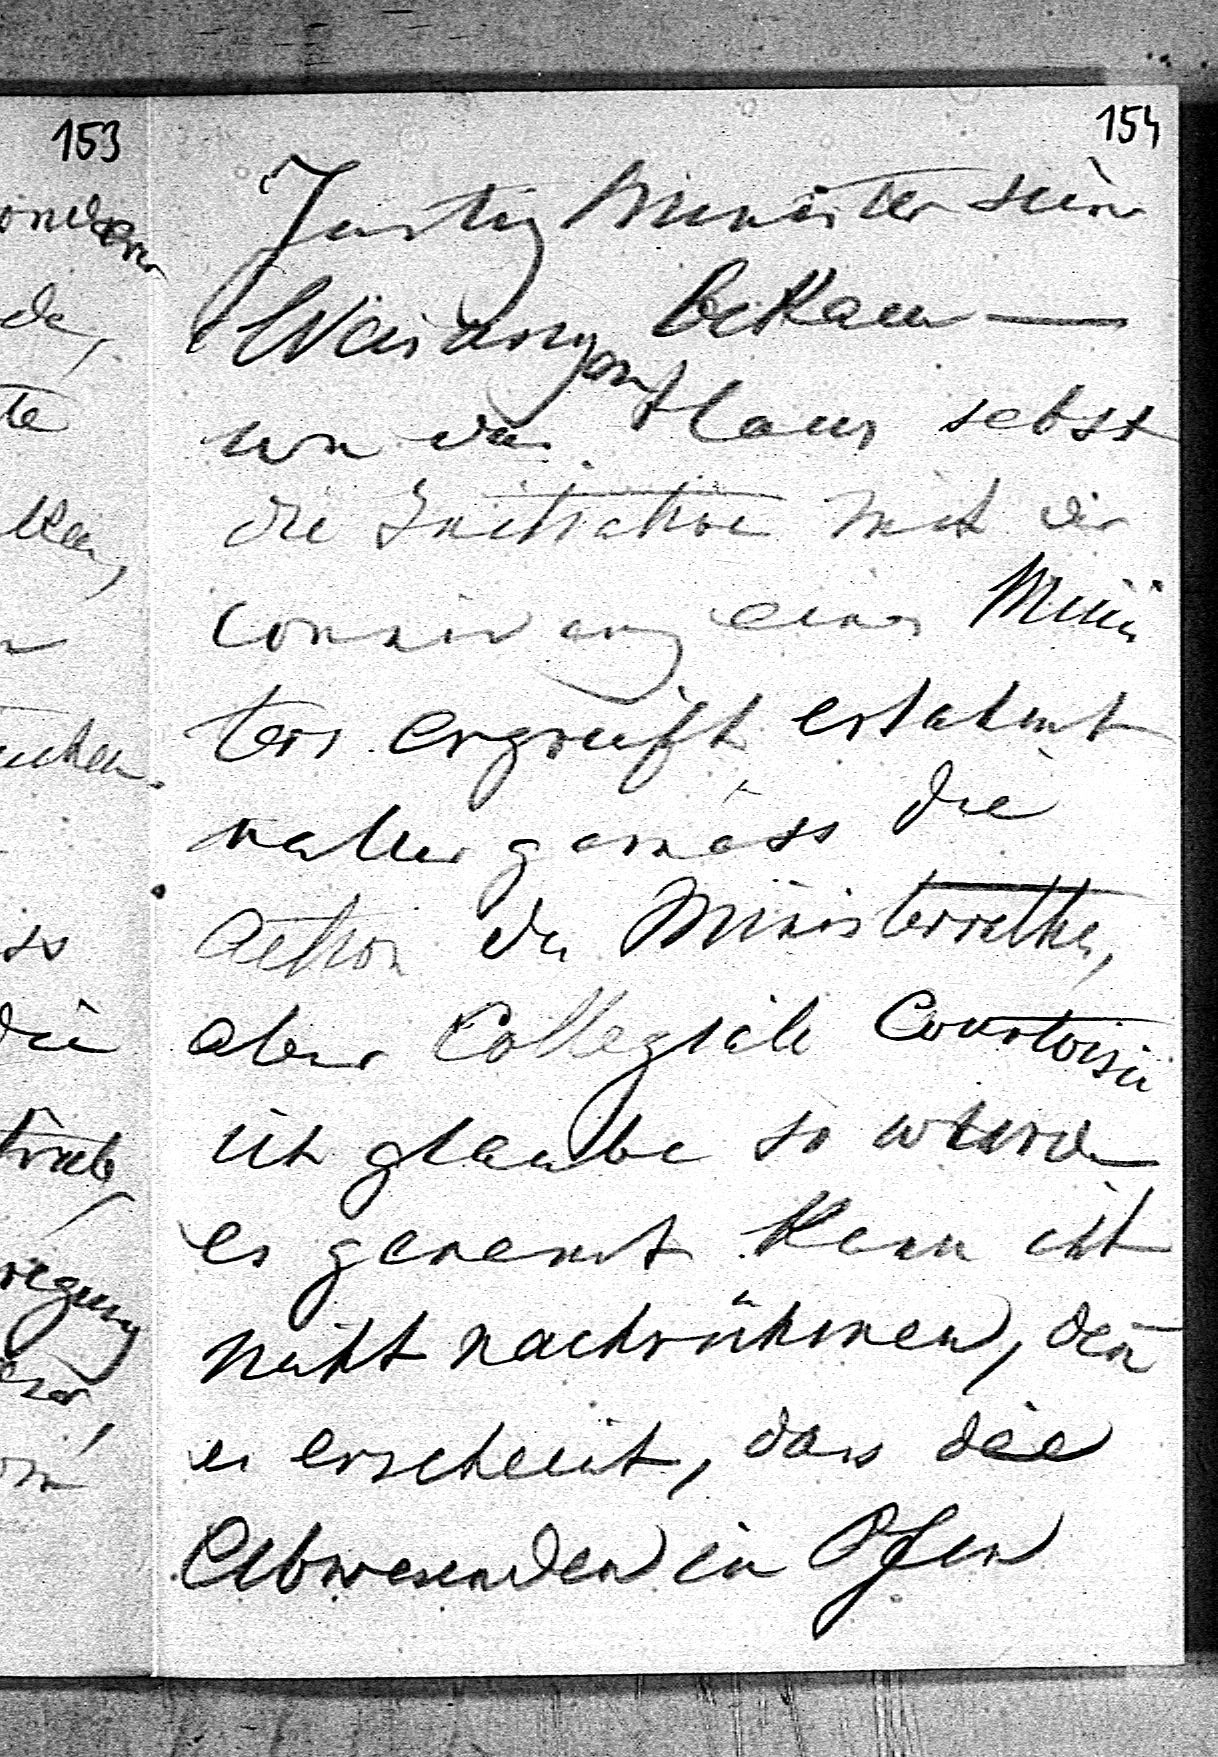 153
154
Justiz Minister seine
Weisung bekam —
wen das Haus selbst
die Initiative mit der
connivenz eines Minis
ters ergreift, erlahmt
naturgemäss die
Action des Ministerrathes,
aber Collegiale Courtoisie
ich glaube so wurde
es genannt kann ich
nicht nachrühmen, den̄
es erscheint, dass die
Abwesenden in Ofen